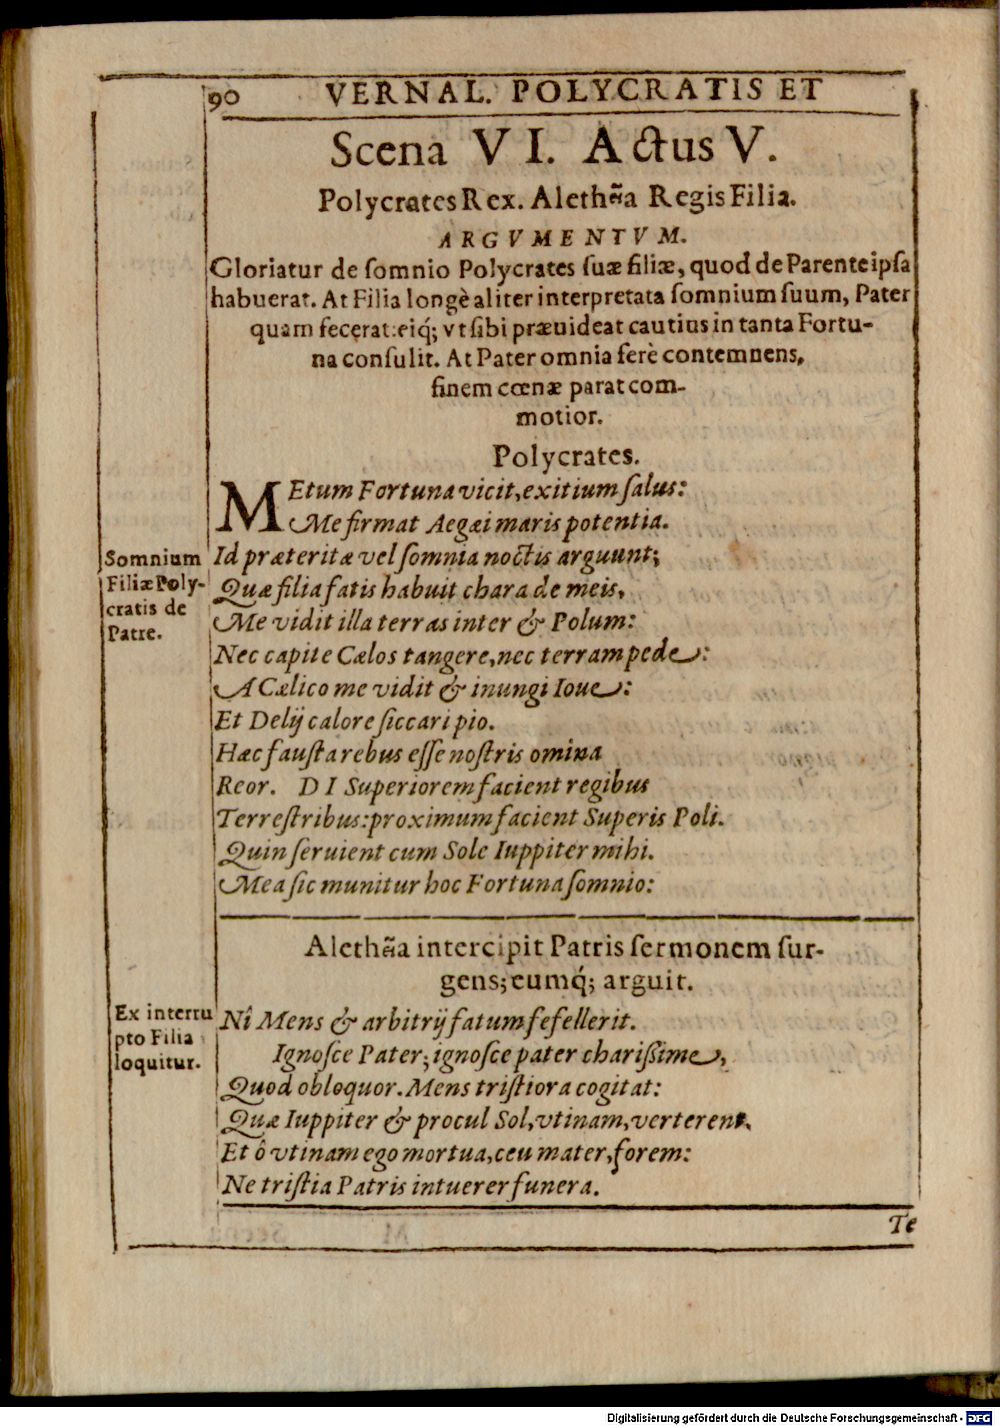 90 VERNAL. POLYCRATIS ET
Scena VI. Actus V.
Polycrates Rex. Alethæa Regis Filia.
ARGVMENTVM.
Gloriatur de ſomnio Polycrates ſuæ filiæ, quod de Parente ipſa
habuerat. At Filia longè aliter interpretata ſomnium ſuum, Pater
quam fecerat: eiq́; vt ſibi præuideat cautius in tanta Fortu-
na conſulit. At Pater omnia ferè contemnens,
finem cœnæ parat com-
motior.
Polycrates.
MEtum Fortuna vicit, exitium ſalus:
Me firmat Aegæi maris potentia.
Somnium
Filiæ Poly-
cratis de
Patre.
Id præteritæ vel ſomnia noctis arguunt;
Quæ filia fatis habuit chara de meis,
Me vidit illa terras inter & Polum:
Nec capite Cælos tangere, nec terram pede:
A Cælico me vidit & inungi Ioue:
Et Delij calore ſiccari pio.
Hæc fauſta rebus eſſe noſtris omina
Reor. DI Superiorem facient regibus
Terreſtribus: proximum facient Superis Poli.
Quin ſeruient cum Sole Iuppiter mihi.
Mea ſic munitur hoc Fortuna ſomnio:
Alethæa intercipit Patris ſermonem ſur-
gens; eumq́; arguit.
Ex interru
pto Filia
loquitur.
Nî Mens & arbitrij fatum fefellerit.
Ignoſce Pater; ignoſce pater charißime,
Quod obloquor. Mens triſtiora cogitat:
Quæ Iuppiter & procul Sol, vtinam, verterent,
Et ô vtinam ego mortua, ceu mater, forem:
Ne triſtia Patris intuerer funera.
Te
Digitalisierung gefördert durch die Deutsche Forschungsgemeinschaft - DFG